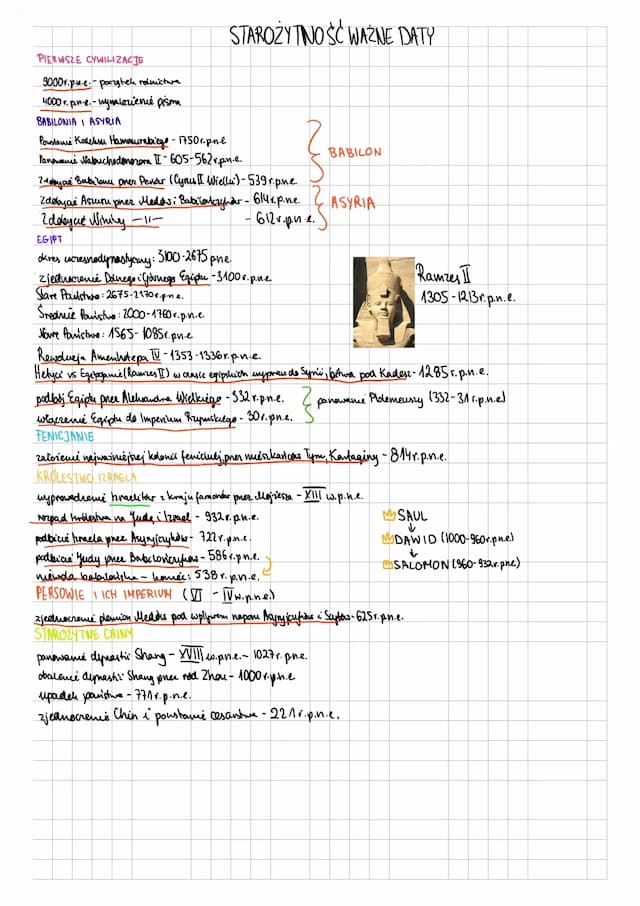 STAROŻYTNOŚĆ WAŻNE DATY
PIERWSZE CYWILIZACJE
9000r.p.n.e. - początek rolnictwa
4000r.p.n.e. - wynalezienie pisma
BABILONIA I ASYRIA
Powstanie Kodeksu Hammurabiego - 1750r.p.n.e
Panowanie Nabuchodonozora II - 605-562r.p.n.e.
Zdobycie Babilonu przez Persów (Cyrus II Wielki) - 539r.p.n.e.
BABILON
Zdobycie Assuru przez Medów i Babilończyków - 614r.p.n.e.
Zdobycie Niniwy -11- - 612r.p.n.e.
ASYRIA
EGIPT
okres wczesnodynastyczny: 3100-2675 pne.
zjednoczenie Dolnego i Górnego Egiptu - 3100r.p.n.e
Stare Państwo: 2675-2170r.p.n.e.
Średnie Państwo: 2000-1760r.p.n.e.
Nowe Państwo: 1565-1085r.p.n.e
Ramzes II
1305-1213r.p.n.e.
Rewolucja Amenhotepa IV - 1353-1336r.p.n.e.
Hetyci vs Egipcjanie (Ramzes II) w czasie egipskich wypraw do Syrii, bitwa pod Kadesz - 1285r.p.n.e.
podbój Egiptu przez Aleksandra Wielkiego - 332r.p.n.e.
włączenie Egiptu do Imperium Rzymskiego - 30r.p.n.e.
panowanie Ptolemeuszy (332-31r.p.n.e)
FENICJANIE
założenie najważniejszej kolonii fenickiej przez mieszkańców Tyru, Kartaginy - 814r.p.n.e.
KRÓLESTWO IZRAELA
wyprowadzenie Izraelitów z kraju faraonów przez Mojżesza - XIII w.p.n.e.
rozpad królestwa na Judę i Izrael - 932r.p.n.e.
podbicie Izraela przez Asyryjczyków - 722r.p.n.e.
podbicie Judy przez Babilończyków - 586r.p.n.e.
niewola babilońska - koniec: 538r.p.n.e.
SAUL
DAWID (1000-960r.p.n.e)
SALOMON (960-932r.pne)
PERSOWIE I ICH IMPERIUM (VI - IVw.p.n.e)
zjednoczenie plemion Medów pod wpływem naporu Asyryjczyków i Scytów - 625r.p.n.e.
STAROŻYTNE CHINY
panowanie dynastii Shang - XVIII w.p.n.e. - 1027r.p.n.e.
obalenie dynastii Shang przez ród Zhou - 1000r.p.n.e
upadek państwa - 771r.p.n.e.
zjednoczenie Chin i powstanie cesarstwa - 221r.p.n.e.